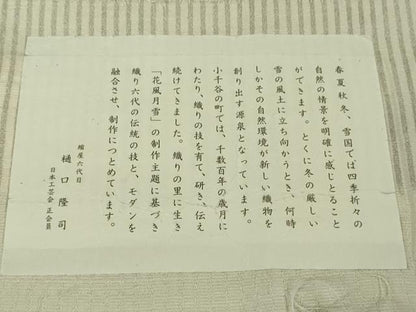 春夏秋冬、雪国では四季折々の
自然の情景を明確に感じとること
ができます。とくに冬の厳しい
雪の風土に立ち向かうとき、何時
しかその自然環境が新しい織物を
創り出す源泉となっています。
小千谷の町では、千数百年の歳月に
わたり、織りの技を育て、研き、伝え
続けてきました。織りの里に生き
「花風月雪」の制作主題に基づき
織り六代の伝統の技と、モダンを
融合させ、制作につとめています。
屋六代目
樋口隆司
日本工芸会 正会員